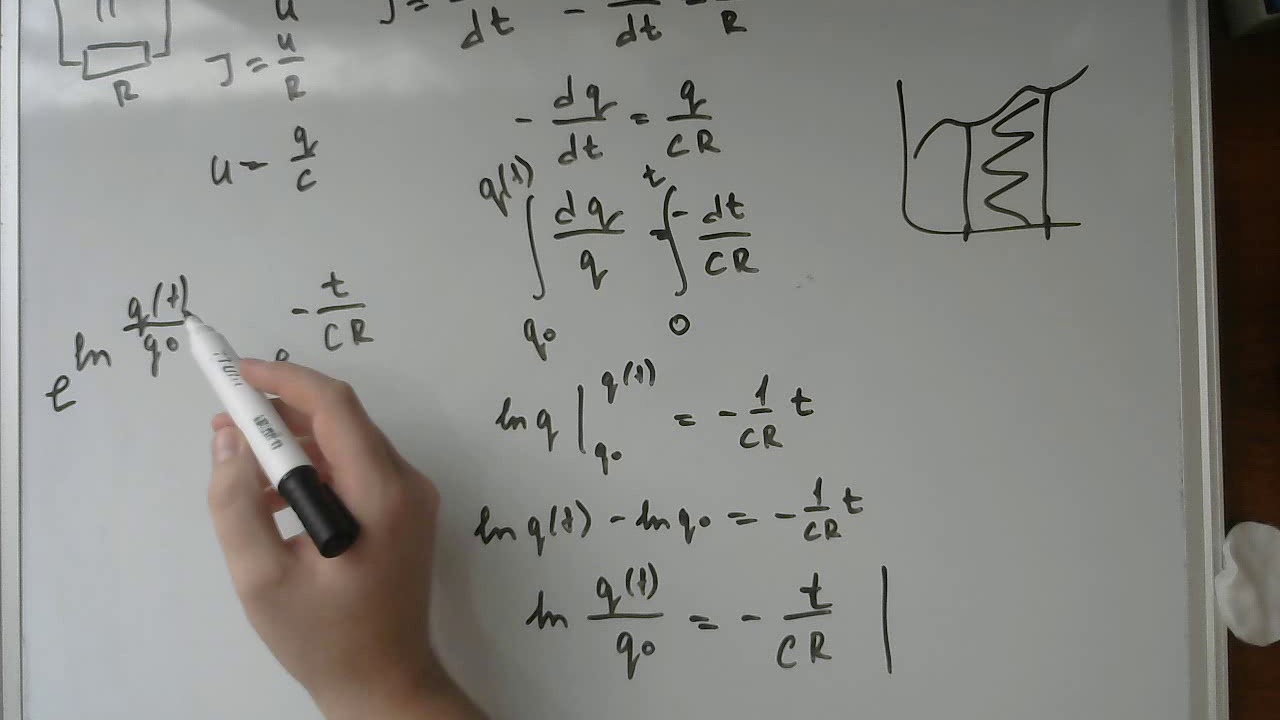 R
u
J = u/R
u = q/C
J =
dt - dt R
- dq/dt = q/CR
∫_{q0}^{q(t)} dq/q = ∫_0^t - dt/CR
ln q |_{q0}^{q(t)} = - 1/CR t
ln q(t) - ln q0 = - 1/CR t
ln q(t)/q0 = - t/CR |
e^{ln q(t)/q0} e^{- t/CR}